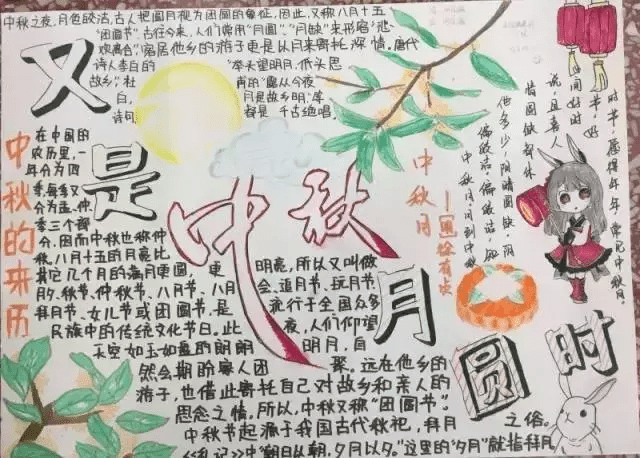 中秋之夜,月色皎洁,古人把圆月视为团圆的象征,因此,又称八月十五
"团圆节"。古往今来,人们常用"月圆"、"月缺"来形容"悲
欢离合",客居他乡的游子更是以月来寄托深情。唐代
诗人李白的"举头望明月,低头思
故乡",杜甫的"露从今夜
白,月是故乡明"等
诗句都是千古绝唱
又是中秋月圆时
中秋的来历
在中国的
农历里,一
年分为四
季,每季又
分为孟、仲、
季三个部
分,因而中秋也称仲
秋。八月十五的月亮比
其它几个月的满月更圆,更明亮,所以又叫做
月夕、秋节、仲秋节、八月节、八月会、追月节、玩月节、
拜月节、女儿节或团圆节,是流行于全国众多
民族中的传统文化节日。此夜,人们仰望
天空如玉如盘的朗朗明月,自
然会期盼家人团聚。远在他乡的
游子,也借此寄托自己对故乡和亲人的
思念之情。所以,中秋又称"团圆节"。
中秋节起源于我国古代秋祀、拜月之俗。
《礼记》中"朝日以朝,夕月以夕。"这里的"夕月"就指拜月
中秋月
——徐有贞
中秋月。月到中秋
偏皎洁。偏皎洁,知
他多少,阴晴圆缺。阴
晴圆缺都休
说,且喜人
间好时
节。好
时节,愿得年年,常见中秋月。